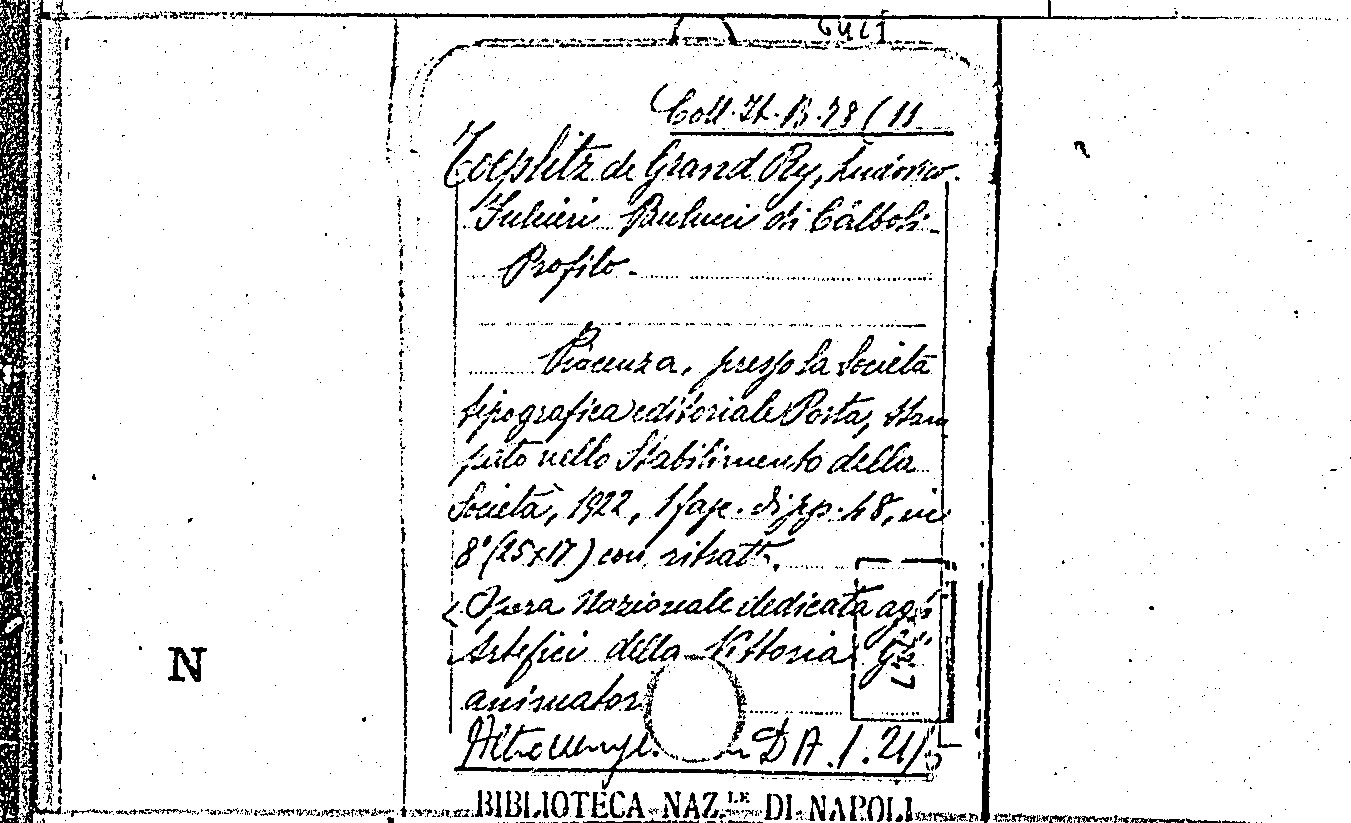 Coll. It. B. 78 (11
Toeplitz de Grand Ry, Ludovico.
Fulcieri Paulucci di Càlboli-
Profilo.
Piacenza, presso la Società
tipografica editoriale Porta, stam
pato nello Stabilimento della
Società, 1922, 1 fasc. di pp. 48, in
8° (25x17) con ritratt.
(Opera Nazionale dedicata agli
Artefici della Vittoria. Gli
animator
Altro DA. 1. 21/5
N
BIBLIOTECA NAZ.LE DI NAPOLI